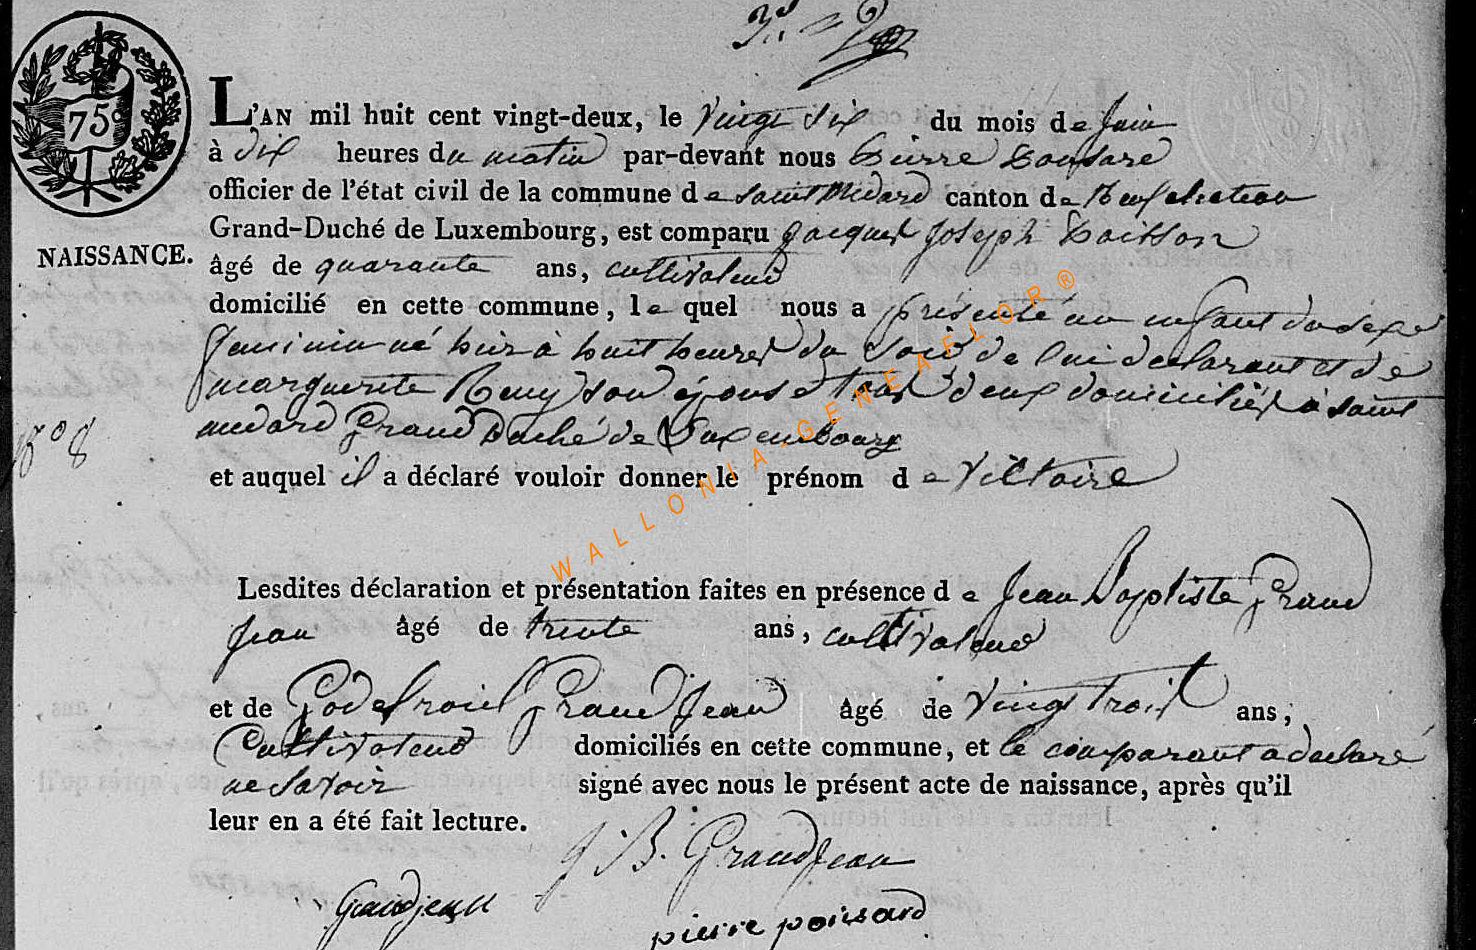 75c
L'AN mil huit cent vingt-deux, le vingt six du mois de juin
à dix heures du matin par-devant nous Pierre Pousare
officier de l'état civil de la commune de saint Médard canton de Neufchateau
Grand-Duché de Luxembourg, est comparu Jacques Joseph Poisson
NAISSANCE.
âgé de quarante ans, cultivateur
domicilié en cette commune, le quel nous a présenté un enfant du sexe
feminin né hier à huit heures du soir de lui declarant et de
marguerite Remy son épouse tous deux domiciliés à saint
medard Grand Duché de Luxembourg
N° 8
et auquel il a déclaré vouloir donner le prénom de Victoire
WALLONIA-GENEALOR®
Lesdites déclaration et présentation faites en présence de Jean Baptiste Grand
jean âgé de trente ans, cultivateur
et de Godefroid Grand Jean âgé de vingt trois ans,
Cultivateur domiciliés en cette commune, et le comparant a declaré
ne savoir signé avec nous le présent acte de naissance, après qu'il
leur en a été fait lecture.
J B. Grandjean
Grandjean
pierre poissard